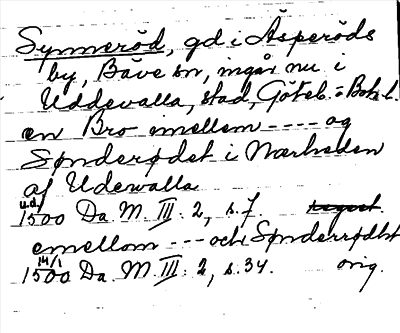 Synneröd, gd i Äsperöds
by, Bäve sn, ingår nu i
Uddevalla, stad, Göteb. o. Boh. l.
en Bro imellem ---- og
Sønderødet i Nærheden
af Udewalla
u.d. 1500 Da. M. III: 2, s. 7.
emellom --- och Sønderrødht
14/1 1500 Da. M. III: 2, s. 34. orig.